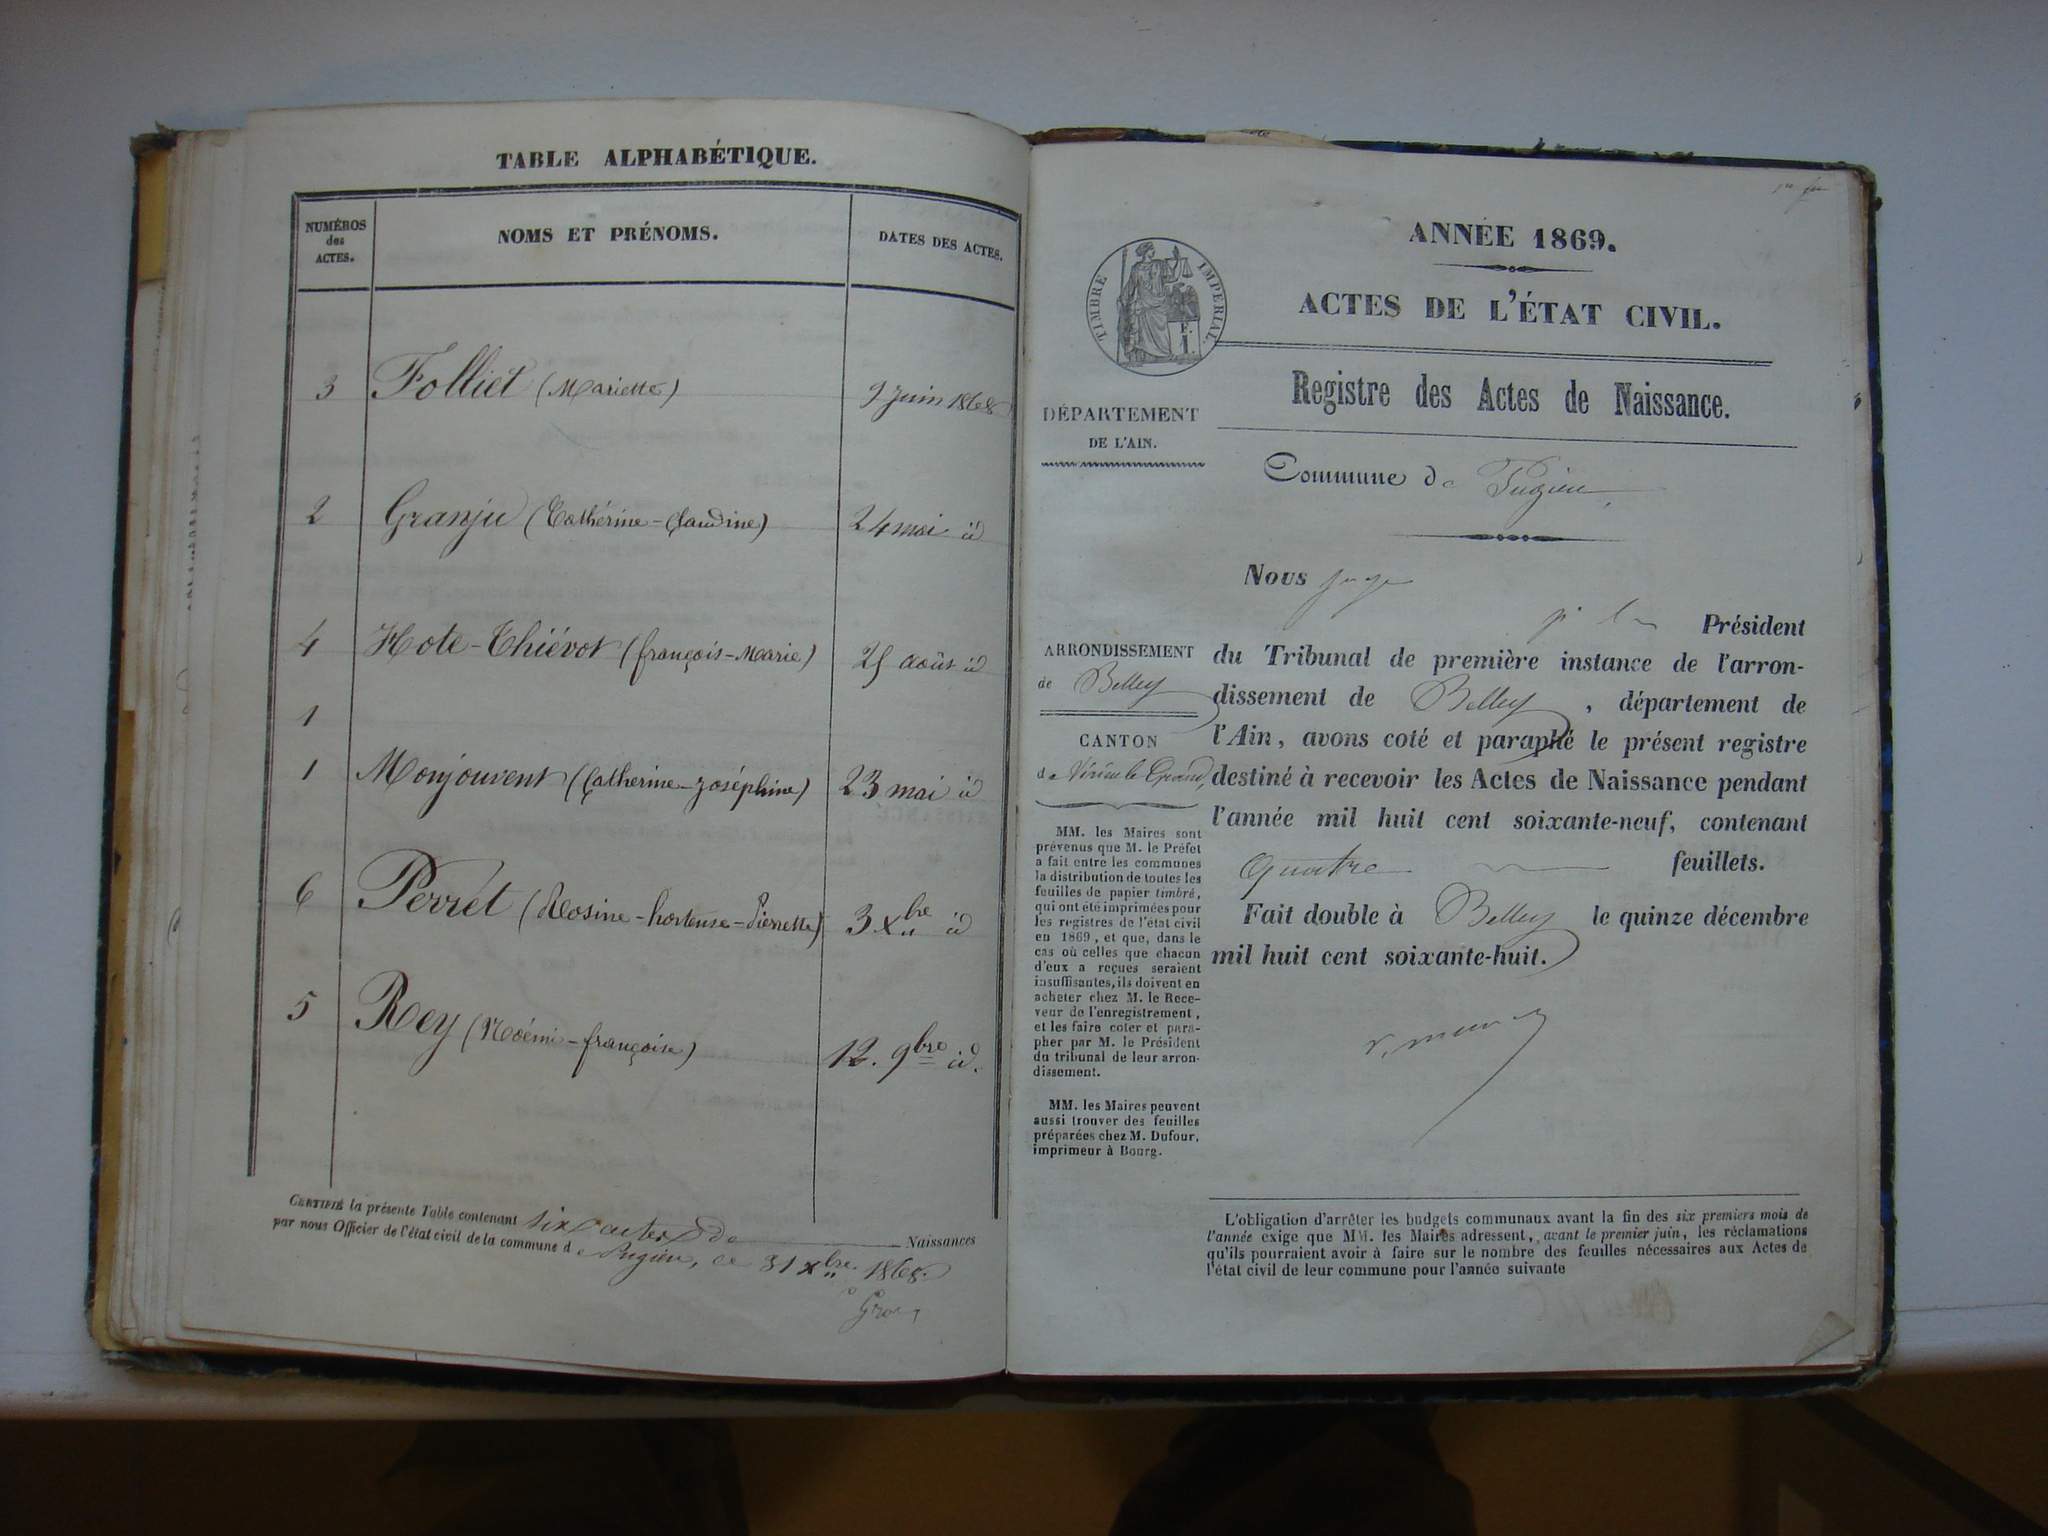 TABLE ALPHABÉTIQUE.
NUMÉROS
des
ACTES.
NOMS ET PRÉNOMS.
DATES DES ACTES.
3 Folliet (Mariette) 9 juin 1868
2 Granju (Cathérine-Claudine) 24 mai id
4 Hote-Thiévot (françois-Marie) 25 août id
1
1 Monjouvent (Catherine-Joséphine) 23 mai id
6 Perret (Rosine-hortense-Pierrette) 3 xbre id
5 Rey (Noémi-françoise) 12. 9bre id.
CERTIFIÉ la présente Table contenant six actes de Naissances
par nous Officier de l'état civil de la commune de Pugieu, ce 31 xbre 1868.
ANNÉE 1869.
ACTES DE L'ÉTAT CIVIL.
TIMBRE IMPERIAL.
F.
1
Registre des Actes de Naissance.
DÉPARTEMENT
DE L'AIN.
Commune de Pugieu
Nous juge
Président
du Tribunal de première instance de l'arron-
dissement de Belley, département de
l'Ain, avons coté et paraphé le présent registre
destiné à recevoir les Actes de Naissance pendant
l'année mil huit cent soixante-neuf, contenant
quatre feuillets.
Fait double à Belley le quinze décembre
mil huit cent soixante-huit.
ARRONDISSEMENT
de Belley
CANTON
de Virieu le Grand,
MM. les Maires sont
prévenus que M. le Préfet
a fait entre les communes
la distribution de toutes les
feuilles de papier timbré,
qui ont été imprimées pour
les registres de l'état civil
en 1869, et que, dans le
cas où celles que chacun
d'eux a reçues seraient
insuffisantes, ils doivent en
acheter chez M. le Rece-
veur de l'enregistrement,
et les faire coter et para-
pher par M. le Président
du tribunal de leur arron-
dissement.
MM. les Maires peuvent
aussi trouver des feuilles
préparées chez M. Dufour,
imprimeur à Bourg.
L'obligation d'arrêter les budgets communaux avant la fin des six premiers mois de
l'année exige que MM. les Maires adressent, avant le premier juin, les réclamations
qu'ils pourraient avoir à faire sur le nombre des feuilles nécessaires aux Actes de
l'état civil de leur commune pour l'année suivante